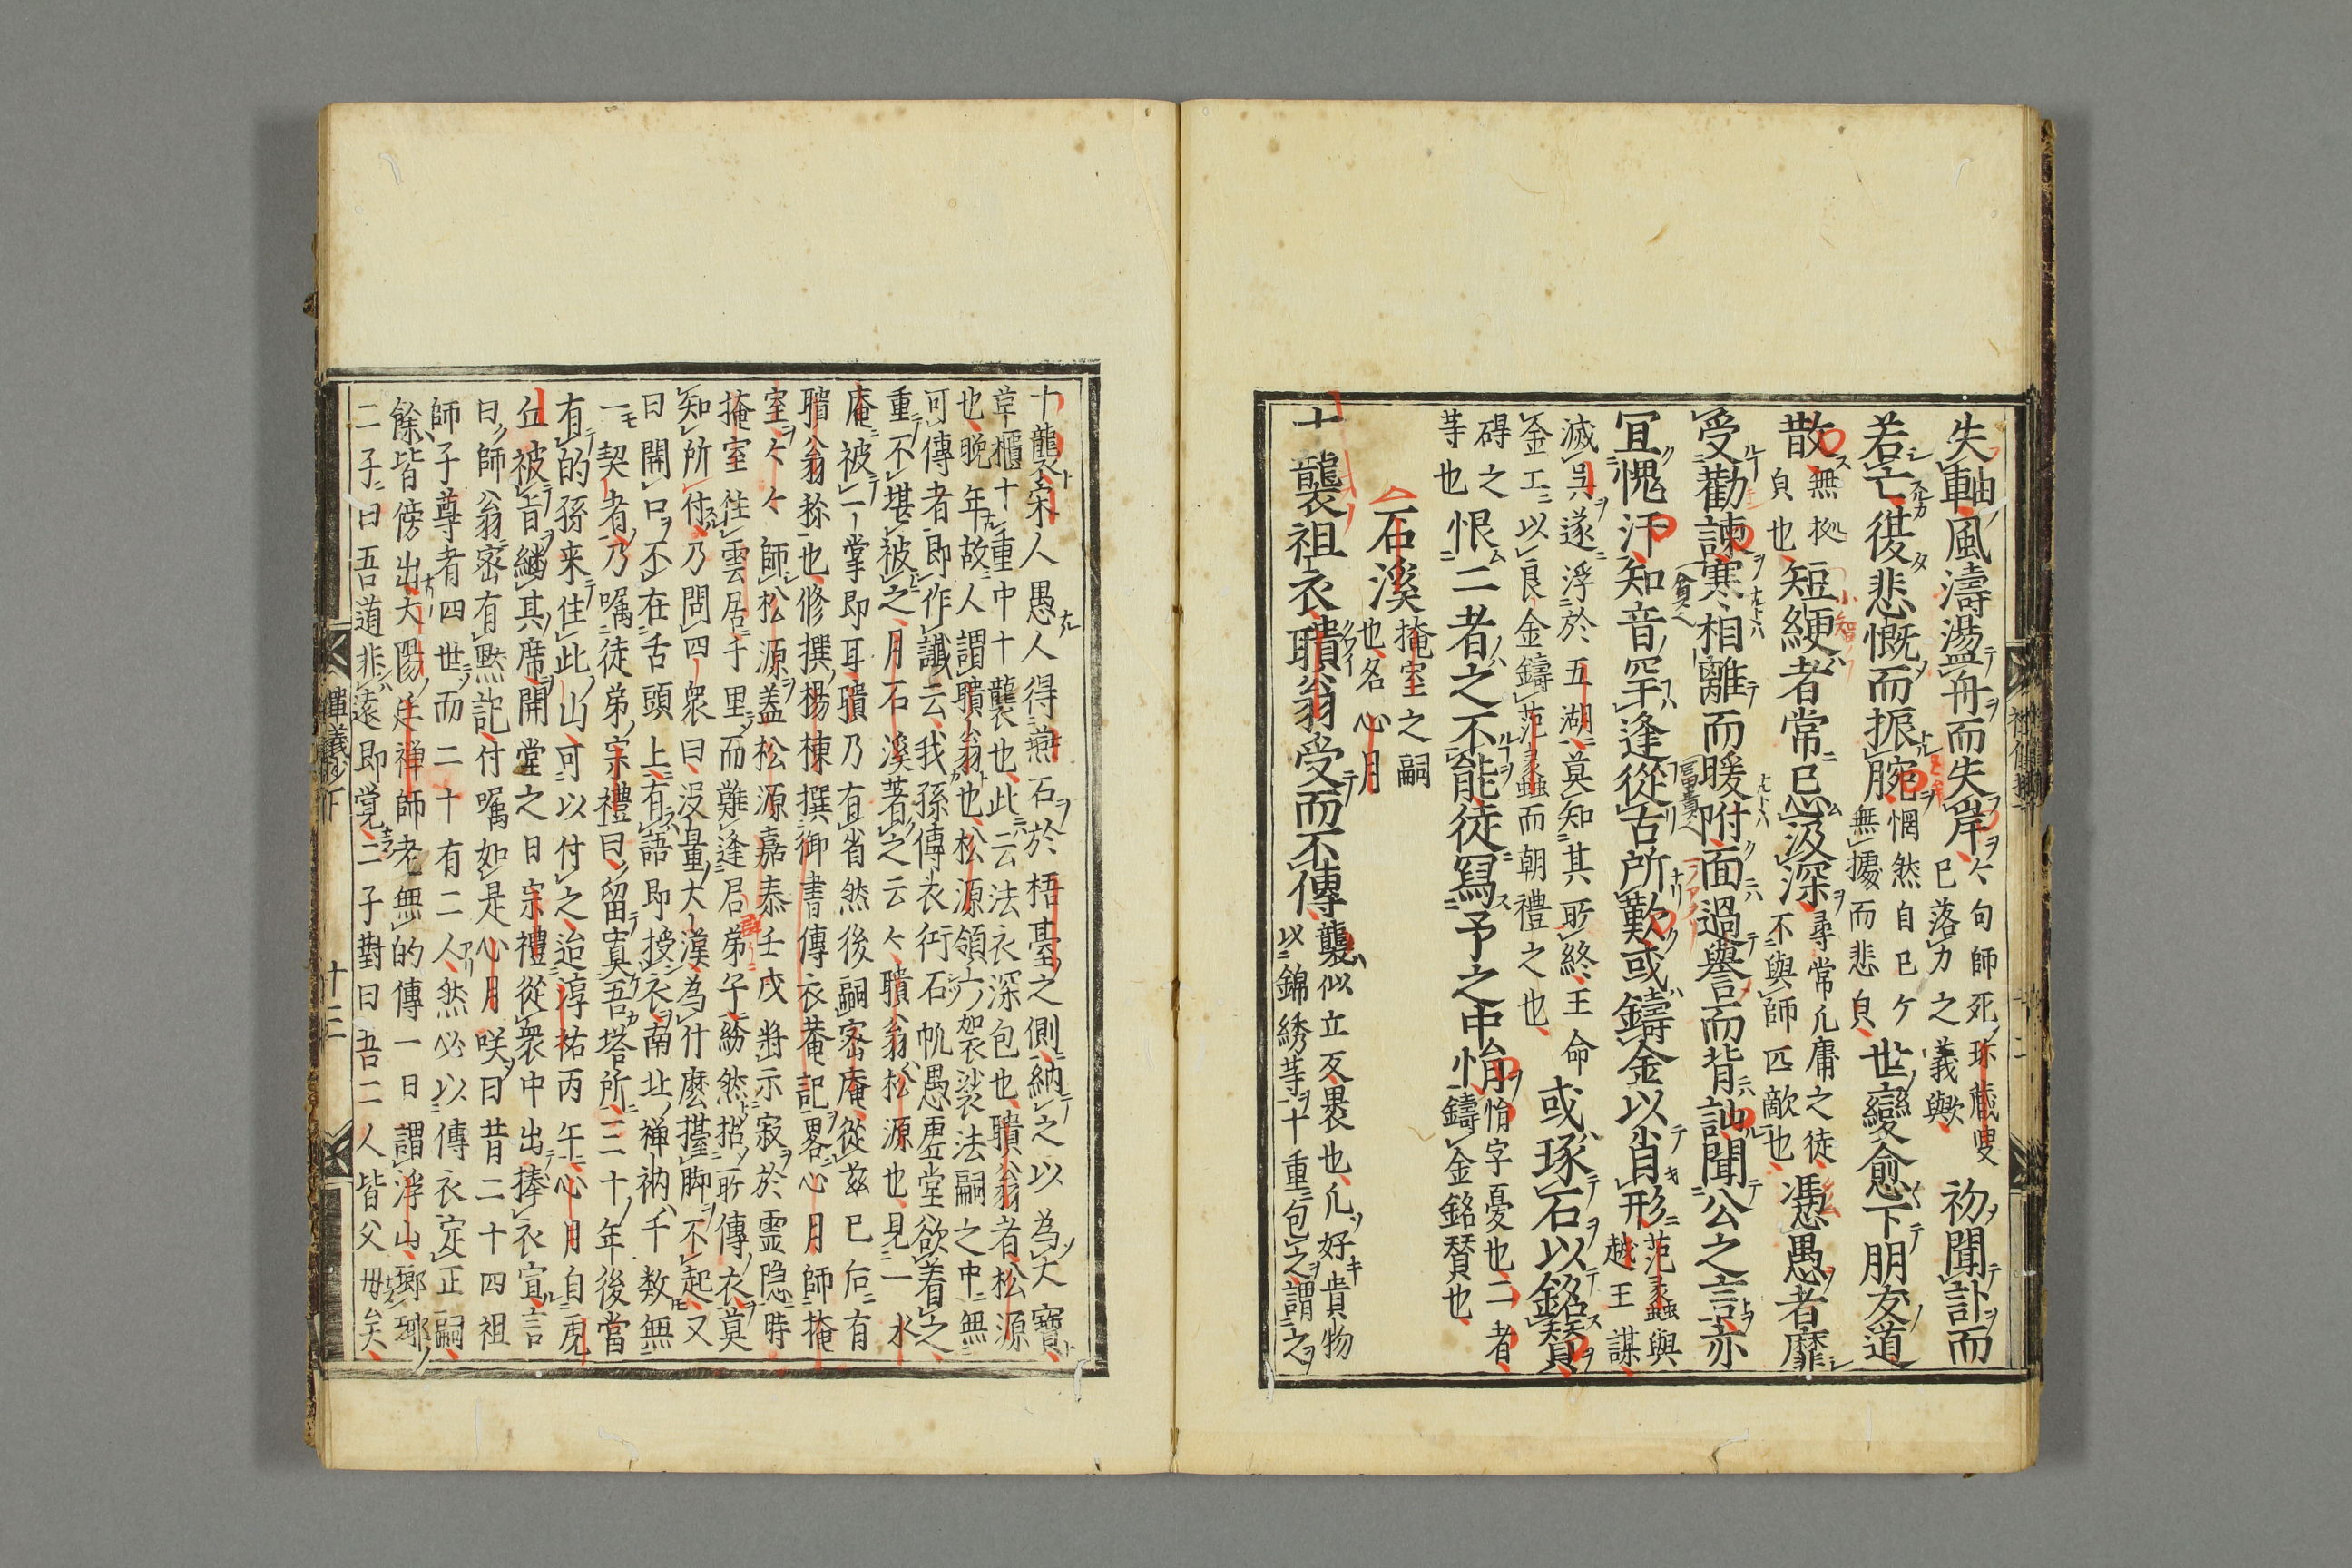 失軸風濤盪舟而失岸
々句師死珎蔵叟
已落力之義歟
初聞訃而
若亡復悲慨而振腕
惘然自已ケ
無據而悲皃
世變愈下朋友道
散
無拠
皃也
短綆者常忌汲深
尋常凡庸之徒
不與師匹敵也
憑愚者靡
受勸諫寒相離而暖附面過譽而背訕聞公之言亦
宜愧汗知音罕逢從古所歎或鑄金以肖形
范蠡與
越王謀
滅吳遂浮於五湖莫知其所終王命
金工以良金鑄范蠡而朝禮之也
或琢石以銘賛
碍之
䓁也
恨二者之不能徒冩予之中悁
悁字憂也二者
鑄金銘賛也
石溪
掩室之嗣
也名心月
十襲祖衣聵翁受而不傳
襲似立反褁也凡好貴物
以錦綉䓁十重包之謂之
十襲宋人愚人得燕石於梧臺之側納之以為大寶
草櫃十重中十襲也此云法衣深包也聵翁者松源
也晩年故人謂聵翁也松源領六袈裟法嗣之中無
可傳者即作讖云我孫傳衣衍石帆愚虚堂欲着之
重不堪被之月石溪著之云々聵翁松源也見一水
庵被一掌即耳聵乃有省然後嗣密庵從茲已后有
聵翁称也修撰楊棟撰御書傳衣菴記畧心月師掩
室々々師松源盖松源嘉泰壬戌將示寂於霊隐時
掩室住雲居千里而難逢居弟子紛然拈所傳衣莫
知所付乃問四衆曰没量大漢為什麽擡脚不起又
曰開口不在舌頭上有語即授衣南北禅衲千数無
一契者乃嘱徒弟宗禮曰留寘吾塔所三十年後當
有的孫来住此山可以付之迨淳祐丙午心月自虎
丘被旨継其席開堂之日宗禮從衆中出捧衣宣言
曰師翁密有黙記付嘱如是心月咲曰昔二十四祖
師子尊者四世而二十有二人然必以傳衣定正嗣
餘皆傍出大陽延禅師老無的傳一日謂浮山瑯琊
二子曰吾道非遠即覚二子對曰吾二人皆父毋矣
禅儀鈔下
十三